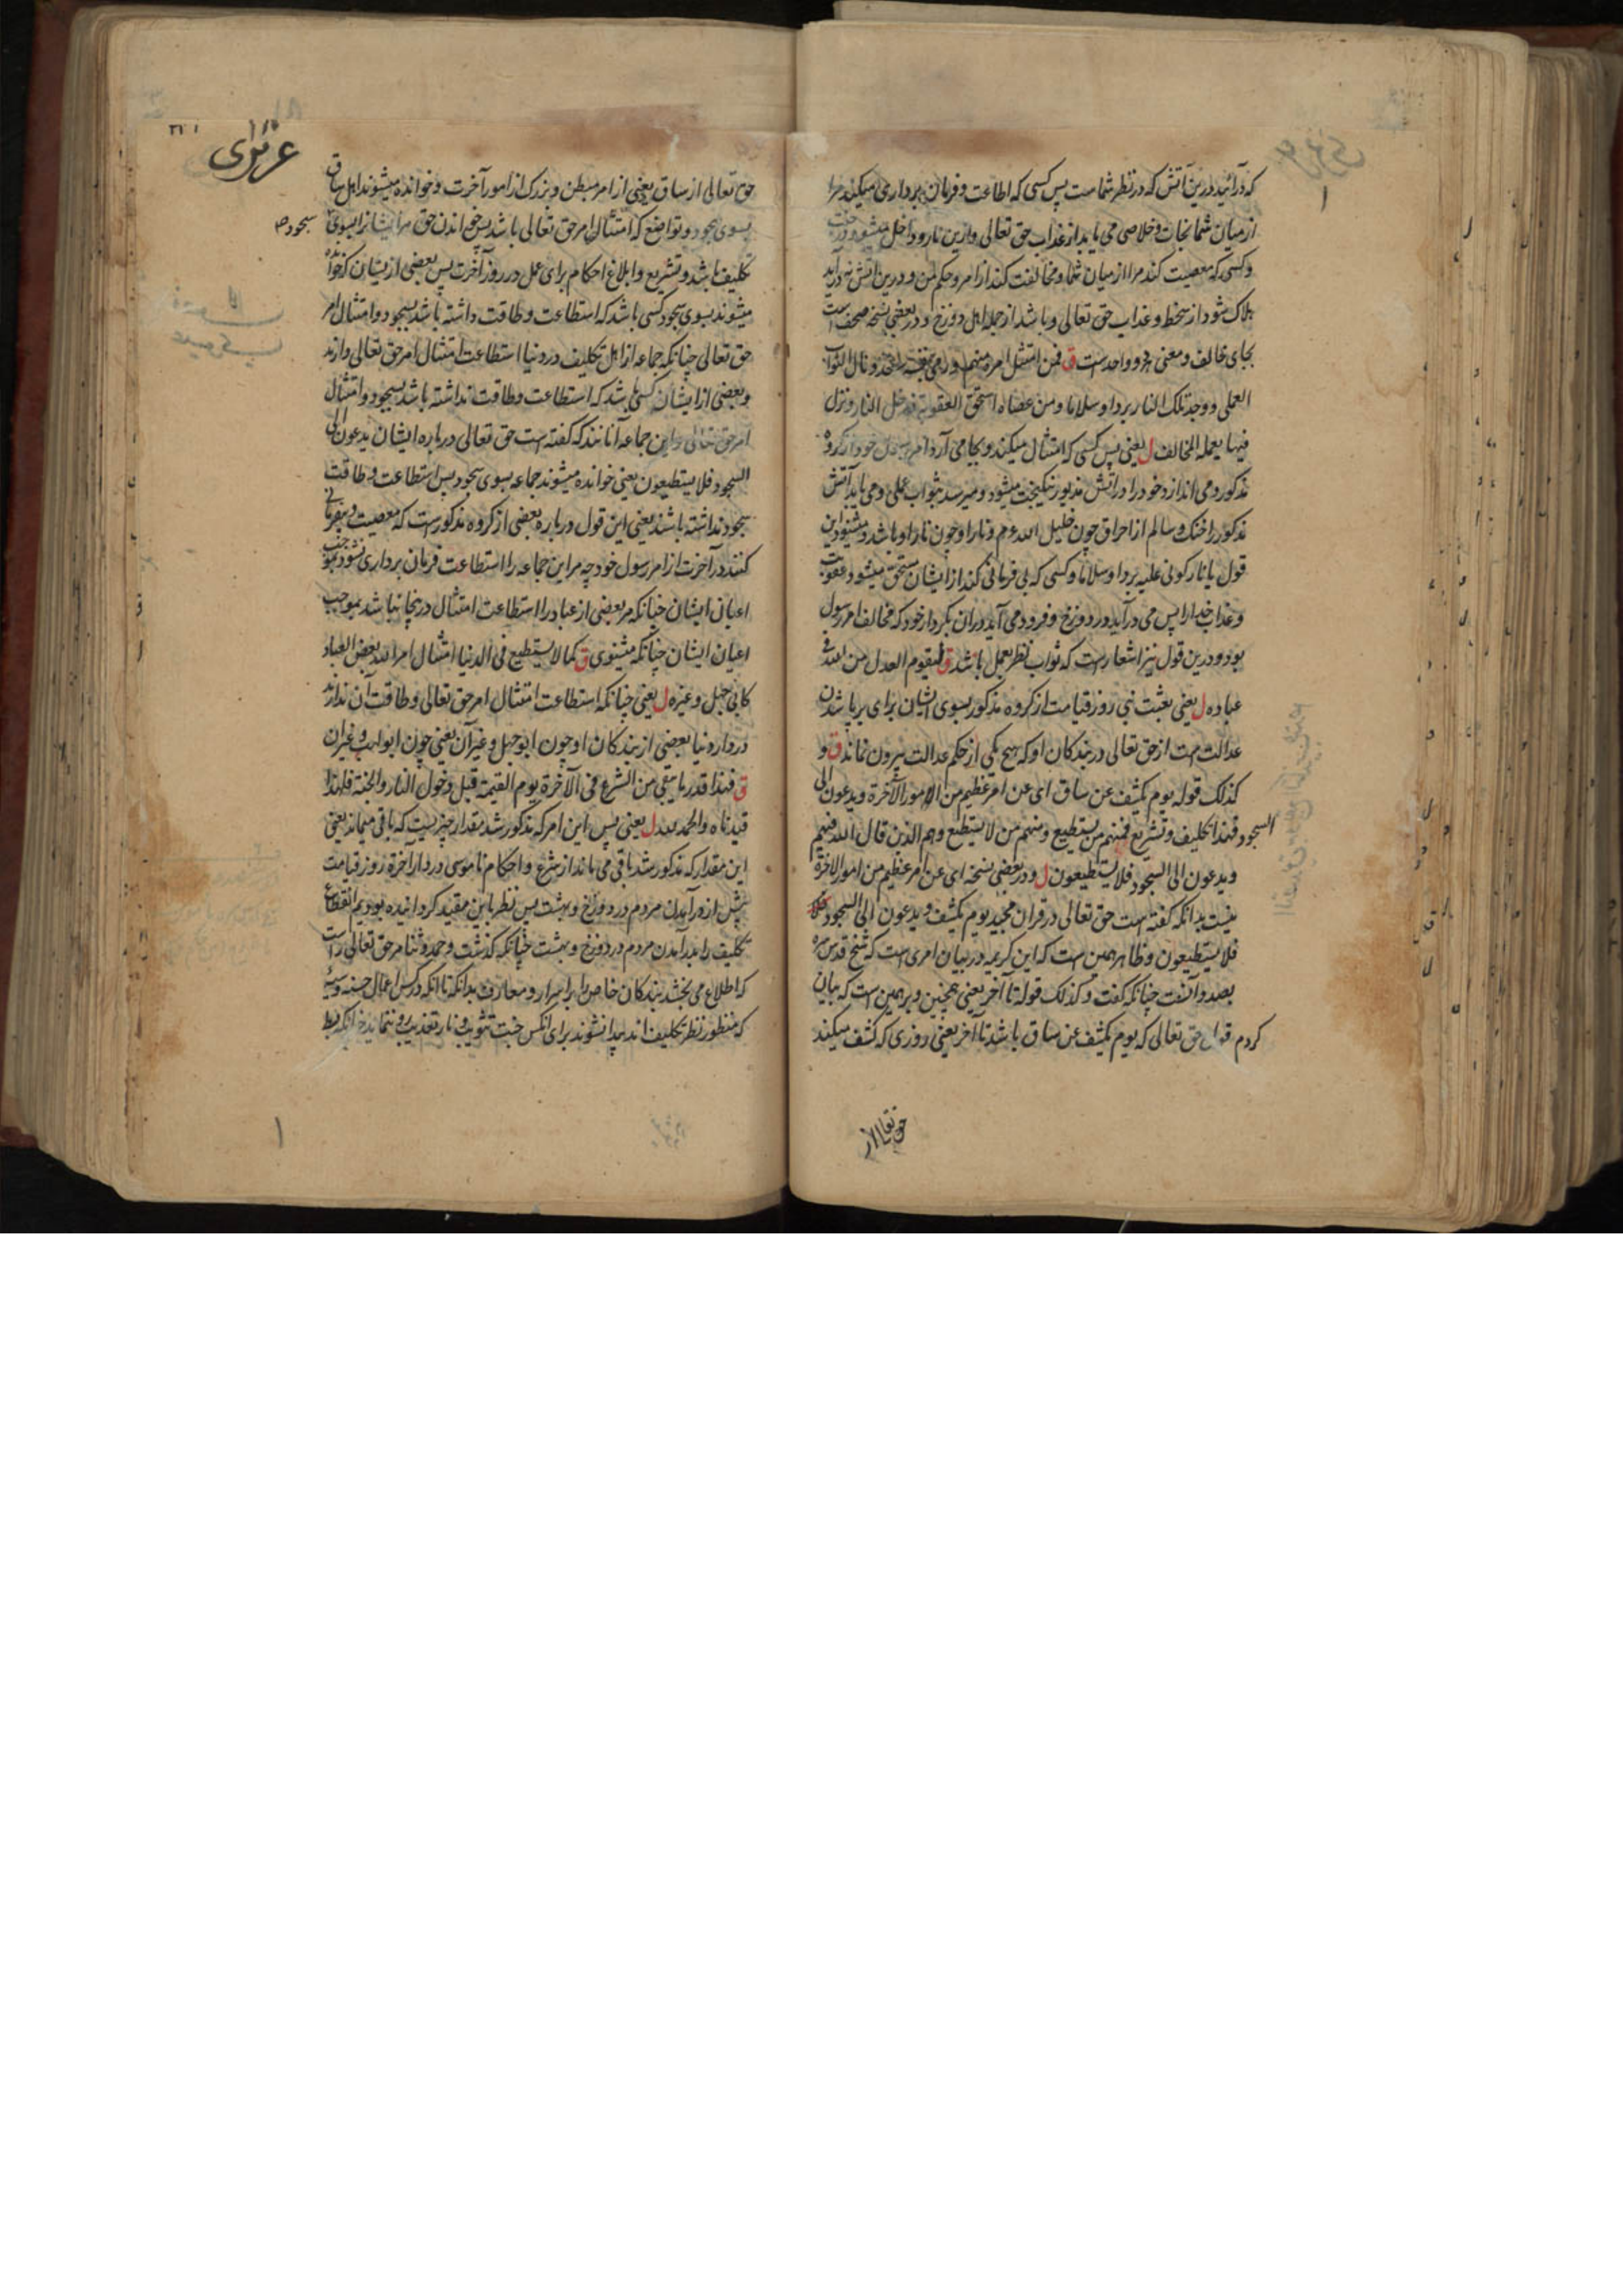 که درآئید درین آتش که در نظر شماست پس کسی که اطاعت و فرمان برداری میکند مرا
از میان شما نجات و خلاصی می یابد از عذاب حق تعالی و ازین نار و داخل میشود در جنت
و کسی که معصیت کند مرا از میان شما و مخالفت کند از امر و حکم من و درین آتش نه درآید
هلاک شود از سخط و عذاب حق تعالی و باشد از جمله اهل دوزخ و در بعضی نسخه
بجای خالف و معنی هر دو واحد است ق فمن امتثل امره منهم و رمی بنفسه ونال الثواب
العملی و وجد تلک النار بردا وسلاما ومن عصاه استحق العقوبة فدخل النار ونزل
فیها بعمله المخالف ل یعنی پس کسی که امتثال میکند و بجا می آرد امر رسول خود از گروه
مذکور و می اندازد خود را در آتش مذبور نیکبخت میشود و میرسد بثواب عملی و می یابد آتش
مذکور را خنک و سالم از احراق چون خلیل الله عم و نار او چون نار او باشد و میشنود این
قول یا نار کونی علیه بردا وسلاما و کسی که بی فرمانی کند از ایشان مستحق میشود عقوبت
و عذاب خدا را پس می درآید در دوزخ و فرود می آید در آن بکردار خود که مخالف امر رسول
بود و درین قول نیز اشعار است که ثواب نظر بعمل باشد ق لیقوم العدل من الله فی
عباده ل یعنی بعثت نبی روز قیامت از گروه مذکور بسوی ایشان برای برپا شدن
عدالت است از حق تعالی در بندگان او که هیچ یکی از حکم عدالت بیرون نماند ق و
کذلک قوله یوم یکشف عن ساق ای عن امر عظیم من الامور الآخرة ویدعون الی
السجود فهذا تکلیف و تشریع فمنهم من یستطیع ومنهم من لا یستطیع وهم الذین قال الله فیهم
ویدعون الی السجود فلا یستطیعون ل و در بعضی نسخه ای عن امر عظیم من امور الآخرة
نیست بدانکه گفته است حق تعالی در قران مجید یوم یکشف ویدعون الی السجود
فلا یستطیعون و ظاهر همین است که این کریمه در بیان امری است که شیخ قدس سره
بصدد آنست چنانکه گفت و کذلک قوله تا آخر یعنی همچنین و برهمین است که بیان
کردم قول حق تعالی که یوم یکشف عن ساق باشد تا آخر یعنی روزی که کشف میکند
حق تعالی از
حق تعالی از ساق یعنی از امر و بزرگ از امور آخرت و خوانده میشوند اهل ساق
بسوی سجود و تواضع که امتثال امر حق تعالی باشد پس خواندن حق مر ایشانرا بسوی
سجود ص
تکلیف باشد و تشریع و ابلاغ احکام برای عمل در روز آخرت پس بعضی از یشان که خوانده
میشوند بسوی سجود کسی باشد که استطاعت و طاقت داشته باشد بسجود و امتثال امر
حق تعالی چنانکه جماعه از اهل تکلیف در دنیا استطاعت امتثال امر حق تعالی دارند
و بعضی از ایشان کسی باشد که استطاعت و طاقت نداشته باشد بسجود و امتثال
امر حق تعالی و این جماعه آنانند که گفته است حق تعالی درباره ایشان یدعون الی
السجود فلا یستطیعون یعنی خوانده میشوند جماعه بسوی سجود پس استطاعت و طاقت
سجود نداشته باشند یعنی این قول درباره بعضی از گروه مذکور است که معصیت و بیفرمانی
کنند در آخرت از امر رسول خود چه مر این جماعه را استطاعت فرمان برداری نشود بموجب
اعیان ایشان چنانکه مر بعضی از عباد را استطاعت امتثال درینجا نباشد بموجب
اعیان ایشان چنانکه میشنوی ق کما لا یستطیع فی الدنیا امتثال امر الله بعض العباد
کابی جهل وغیره ل یعنی چنانکه استطاعت امتثال امر حق تعالی و طاقت آن ندارند
در دار دنیا بعضی از بندگان او چون ابو جهل و غیر آن یعنی چون ابو لهب و غیر آن
ق فهذا قدر ما یبقی من الشرع فی الآخرة یوم القیمة قبل دخول النار والجنة فلهذا
قیدناه والحمد لله ل یعنی پس این امر که مذکور شد مقدار چیزیست که باقی میماند یعنی
این مقدار که مذکور شد باقی می ماند از شرع و احکام ناموسی در دار آخرة روز قیامت
پیش از درآمدن مردم در دوزخ و بهشت پس نظر باین مقید کردانیده بودیم انقطاع
تکلیف را بدرآمدن مردم در دوزخ و بهشت چنانکه گذشت و حمد و ثنا مر حق تعالی راست
که اطلاع می بخشد بندگان خاص را بر اسرار و معارف بدانکه تا آنکه در کس اعمال حسنه و سیئه
که منظور نظر تکلیف اند پیدا نشوند برای آنکس جنت تثویب و نار تعذیب رو ننماید